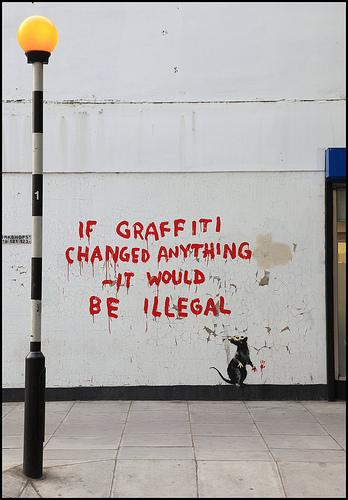 IF GRAFFITI
CHANGED ANYTHING
-IT WOULD
BE ILLEGAL
1